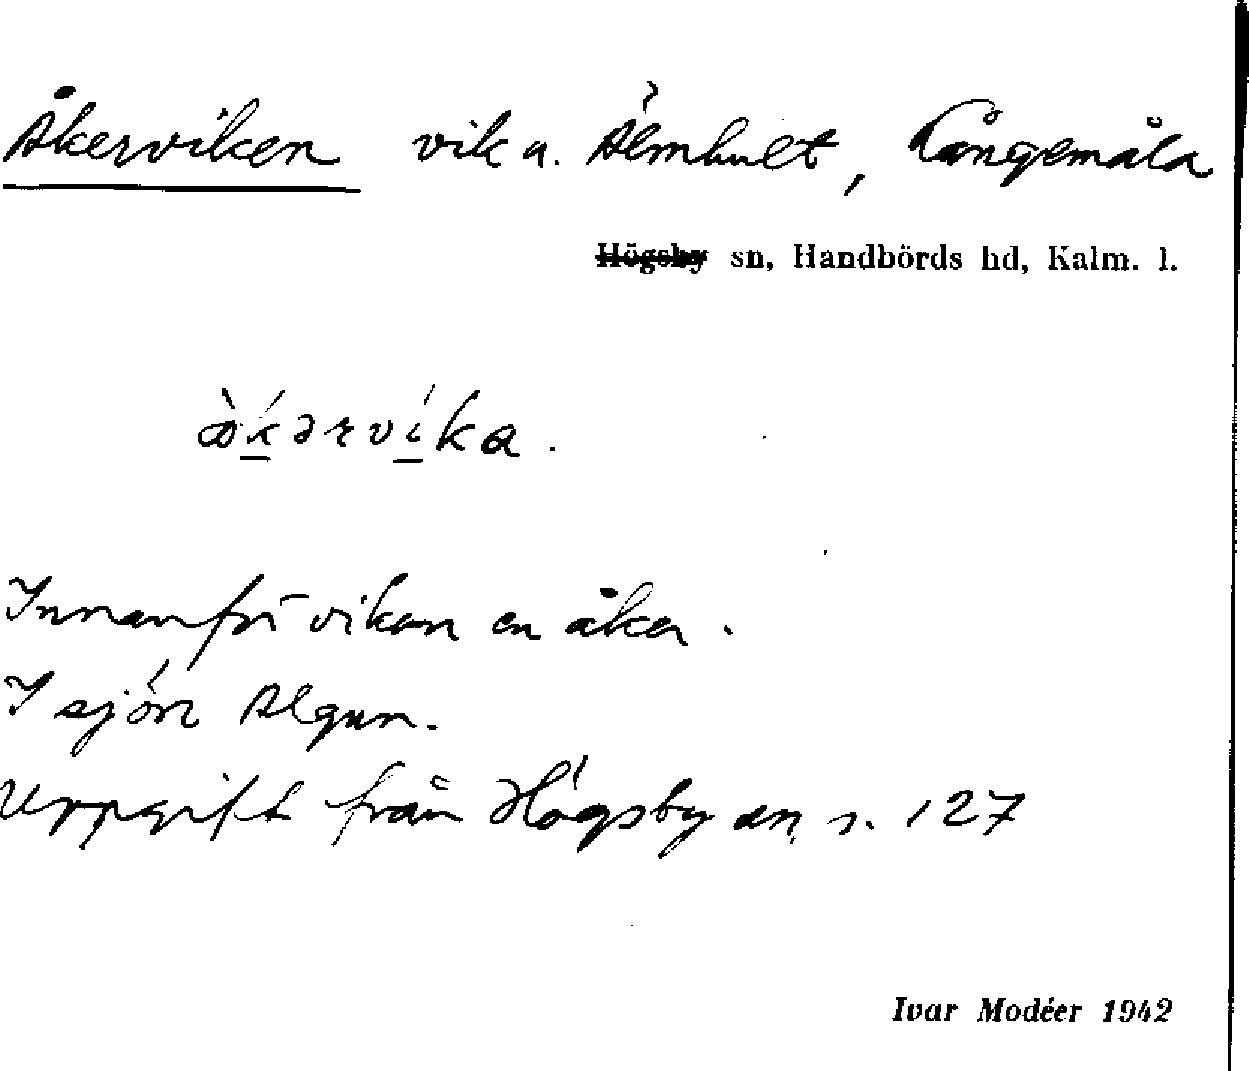 Åkerviken vik a. Älmhult, Långemåla
Högsby sn, Handbörds hd, Kalm. l.
Innanför viken en åker.
I sjön Algun.
Uppgift från Högsby sn s. 127
Ivar Modéer 1942